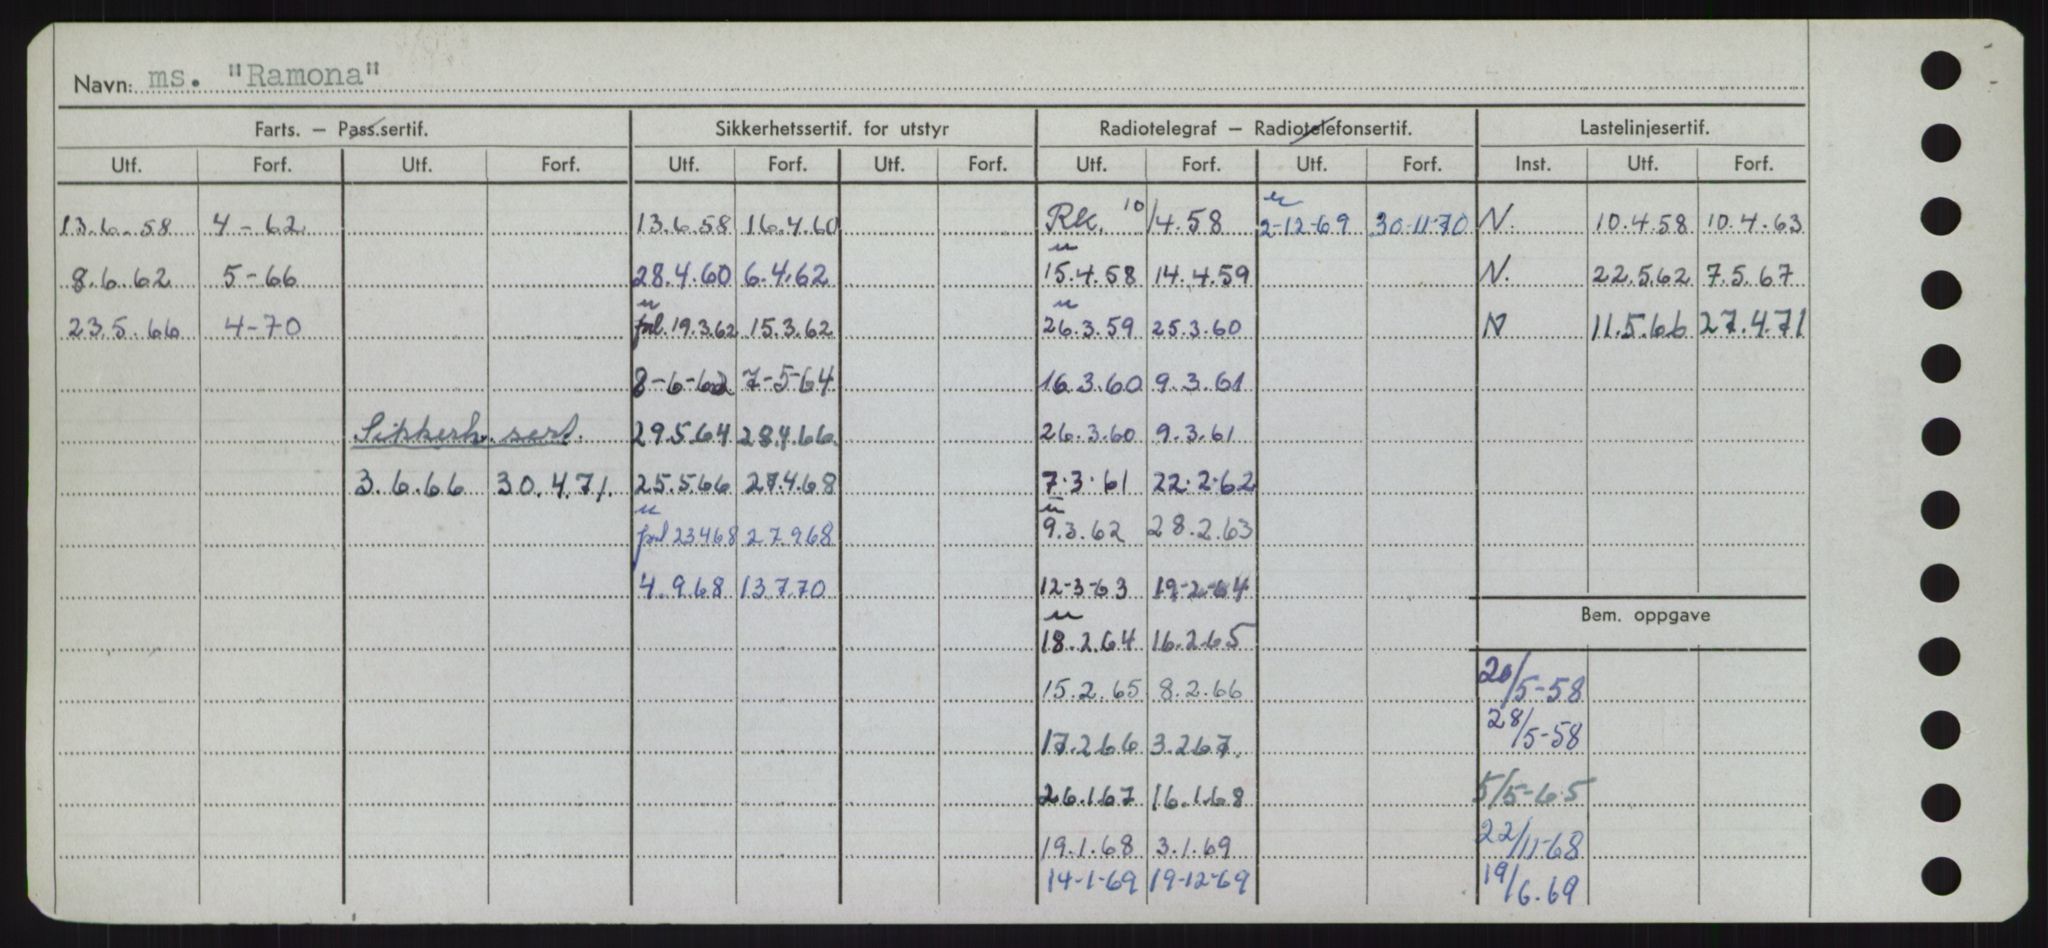 Navn: ms. "Ramona"
Farts. – Pass.sertif. Sikkerhetssertif. for utstyr Radiotelegraf – Radiotelefonsertif. Lastelinjesertif.
Utf. Forf. Utf. Forf. Utf. Forf. Utf. Forf. Utf. Forf. Utf. Forf. Inst. Utf. Forf.
13.6.58 4-62 13.6.58 16.4.60 RK. 10/4.58 u 2-12-69 30-11-70 N. 10.4.58 10.4.63
8.6.62 5-66 28.4.60 6.4.62 u 15.4.58 14.4.59 N. 22.5.62 7.5.67
23.5.66 4-70 u fnl. 19.3.62 15.3.62 u 26.3.59 25.3.60 N 11.5.66 27.4.71
8-6-62 7-5-64 16.3.60 9.3.61
Sikkerh. sert. 29.5.64 28.4.66 26.3.60 9.3.61
3.6.66 30.4.71. 25.5.66 27.4.68 7.3.61 22.2.62
u fnl 23468 27968 u 9.3.62 28.2.63
4.9.68 13.7.70 12-3-63 19-2-64
Bem. oppgave
u 18.2.64 16.2.65
15.2.65 8.2.66 20/5-58
17.2.66 3.2.67. 28/5-58
26.1.67 16.1.68 5/5-65
19.1.68 3.1.69 22/11-68
14-1-69 19-12-69 19/6.69